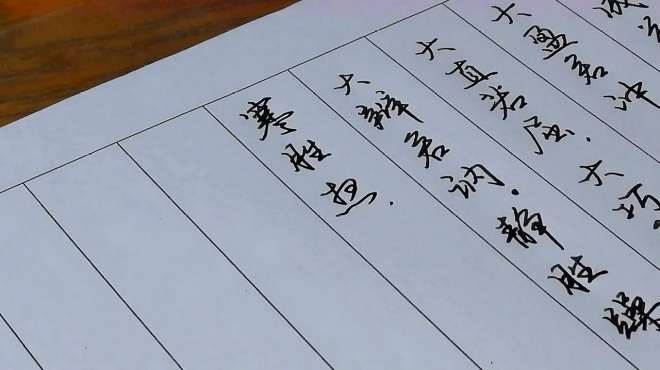 成
大盈若冲
大直若屈.大巧
大辩若讷.静胜躁
寒胜热.